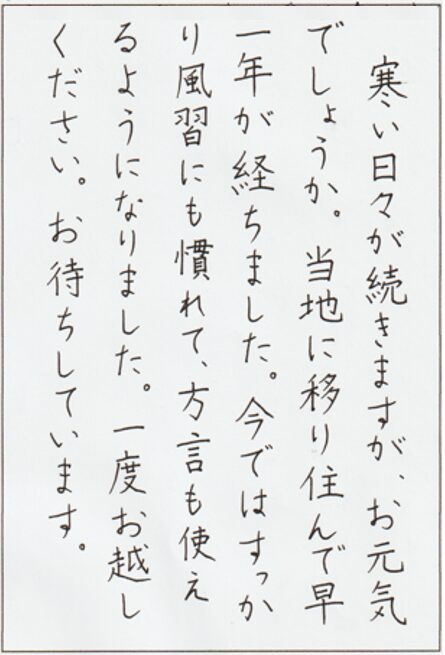 寒い日々が続きますが、お元気
でしょうか。当地に移り住んで早
一年が経ちました。今ではすっか
り風習にも慣れて、方言も使え
るようになりました。一度お越し
ください。お待ちしています。